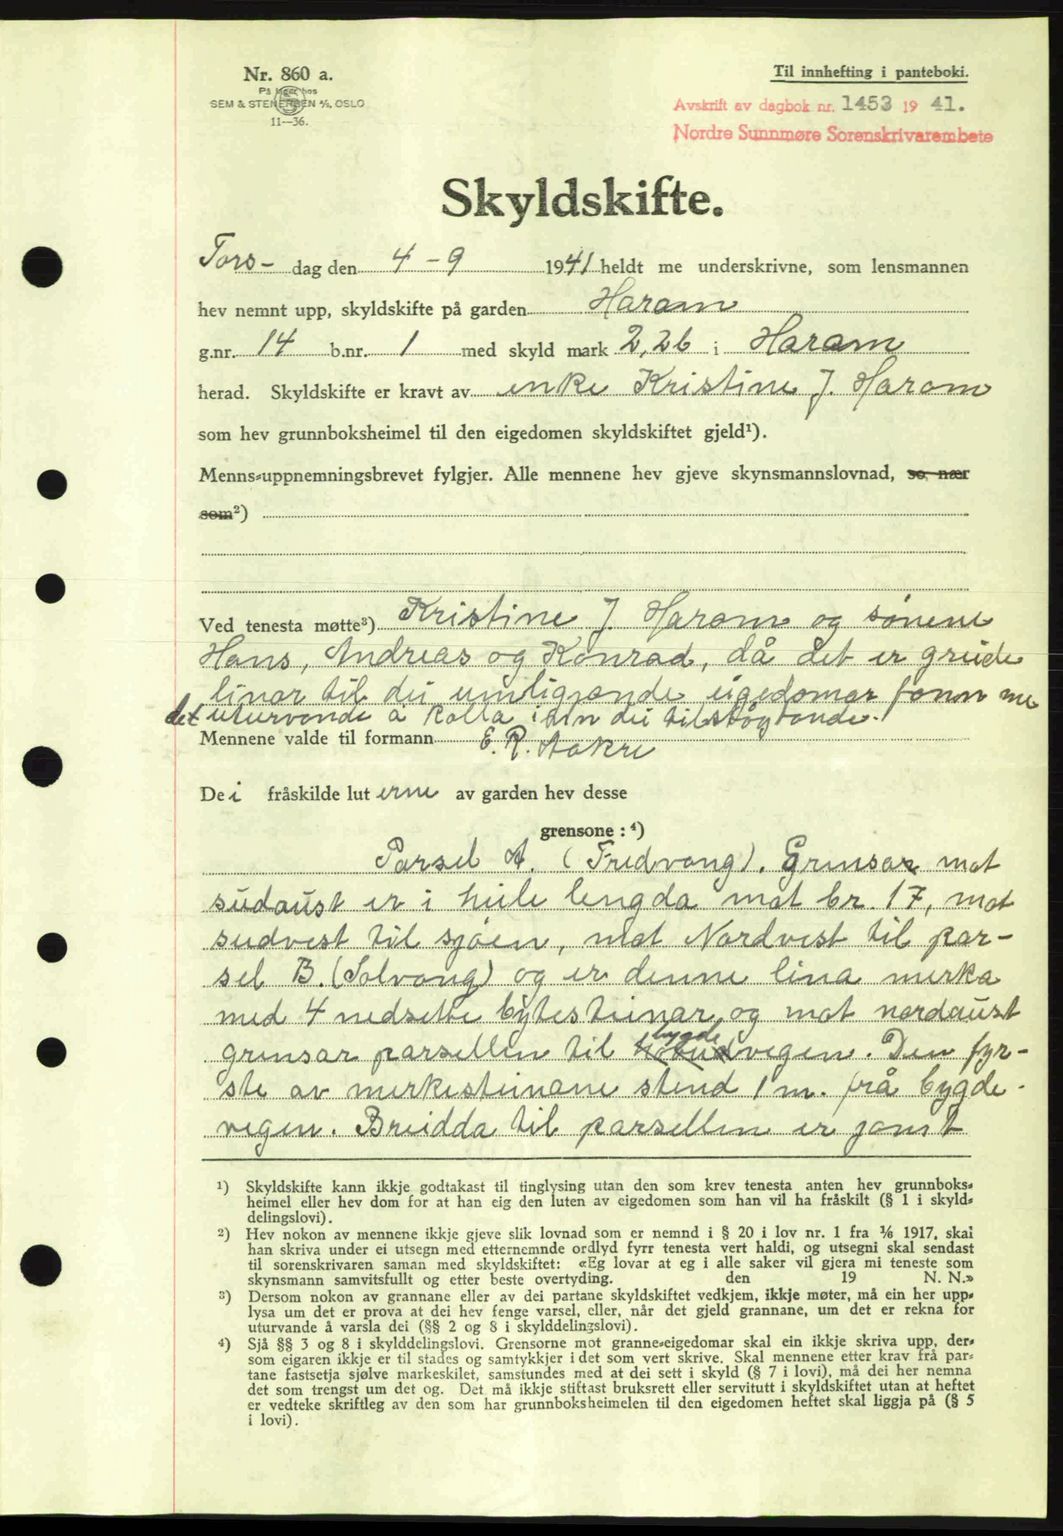 Nr. 860 a.
På lager hos
SEM & STENERSEN A/S, OSLO
11—36.
Til innhefting i panteboki.
Avskrift av dagbok nr. 1453 19 41.
Nordre Sunnmøre Sorenskrivarembete
Skyldskifte.
Tors- dag den 4 - 9 1941 heldt me underskrivne, som lensmannen
hev nemnt upp, skyldskifte på garden Haram
g.nr. 14 b.nr. 1 med skyld mark 2,26 i Haram
herad. Skyldskifte er kravt av enke Kristine J. Haram
som hev grunnboksheimel til den eigedomen skyldskiftet gjeld¹).
Menns-uppnemningsbrevet fylgjer. Alle mennene hev gjeve skynsmannslovnad, so nær
som²)
Ved tenesta møtte³) Kristine J. Haram og sønene
Hans, Andreas og Konrad, då det er greide
linor til dei umliggande eigedomar fann me
det uturvande å kalla inn dei tilstøytande.
Mennene valde til formann E. R. Aakre
Dei fråskilde luterne av garden hev desse
grensone: ⁴)
Parsel A. (Fredvang). Grensar mot
sudaust er i heile lengda mot br. 17, mot
sudvest til sjøen, mot Nordvest til par-
sel B. (Solvang) og er denne lina merka
med 4 nedsette bytesteinar og mot nordaust
grensar parsellen til bygdevegen. Den fyr-
ste av merkesteinane stend 1 m. frå bygde-
vegen. Breidda til parsellen er jamt
¹) Skyldskifte kann ikkje godtakast til tinglysing utan den som krev tenesta anten hev grunnboks-
heimel eller hev dom for at han eig den luten av eigedomen som han vil ha fråskilt (§ 1 i skyld-
delingslovi).
²) Hev nokon av mennene ikkje gjeve slik lovnad som er nemnd i § 20 i lov nr. 1 fra ⅙ 1917, skal
han skriva under ei utsegn med etternemnde ordlyd fyrr tenesta vert haldi, og utsegni skal sendast
til sorenskrivaren saman med skyldskiftet: «Eg lovar at eg i alle saker vil gjera mi teneste som
skynsmann samvitsfullt og etter beste overtyding. den 19 N. N.»
³) Dersom nokon av grannane eller av dei partane skyldskiftet vedkjem, ikkje møter, må ein her upp-
lysa um det er prova at dei hev fenge varsel, eller, når det gjeld grannane, um det er rekna for
uturvande å varsla dei (§§ 2 og 8 i skylddelingslovi).
⁴) Sjå §§ 3 og 8 i skylddelingslovi. Grensorne mot granne-eigedomar skal ein ikkje skriva upp, der-
som eigaren ikkje er til stades og samtykkjer i det som vert skrive. Skal mennene etter krav frå par-
tane fastsetja sjølve markeskilet, samstundes med at dei sett i skyld (§ 7 i lovi), må dei her nemna
det som trengst um det og. Det må ikkje stiftast bruksrett eller servitutt i skyldskiftet utan at heftet
er vedteke skriftleg av den som har grunnboksheimelen til den eigedomen heftet skal liggja på (§ 5
i lovi).